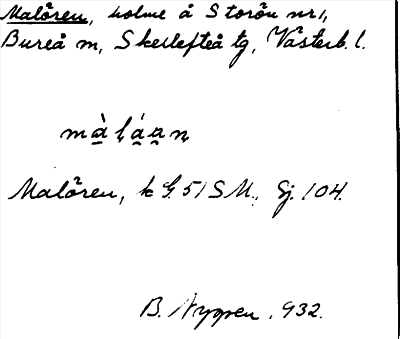 Malören, holme å Storön nr 1,
Bureå sn, Skellefteå tg, Västerb. l.
mà̱ḷá̱a̱ṇ
Malören, k G. 51 SM., Sj. 104.
B. Nygren. 932.